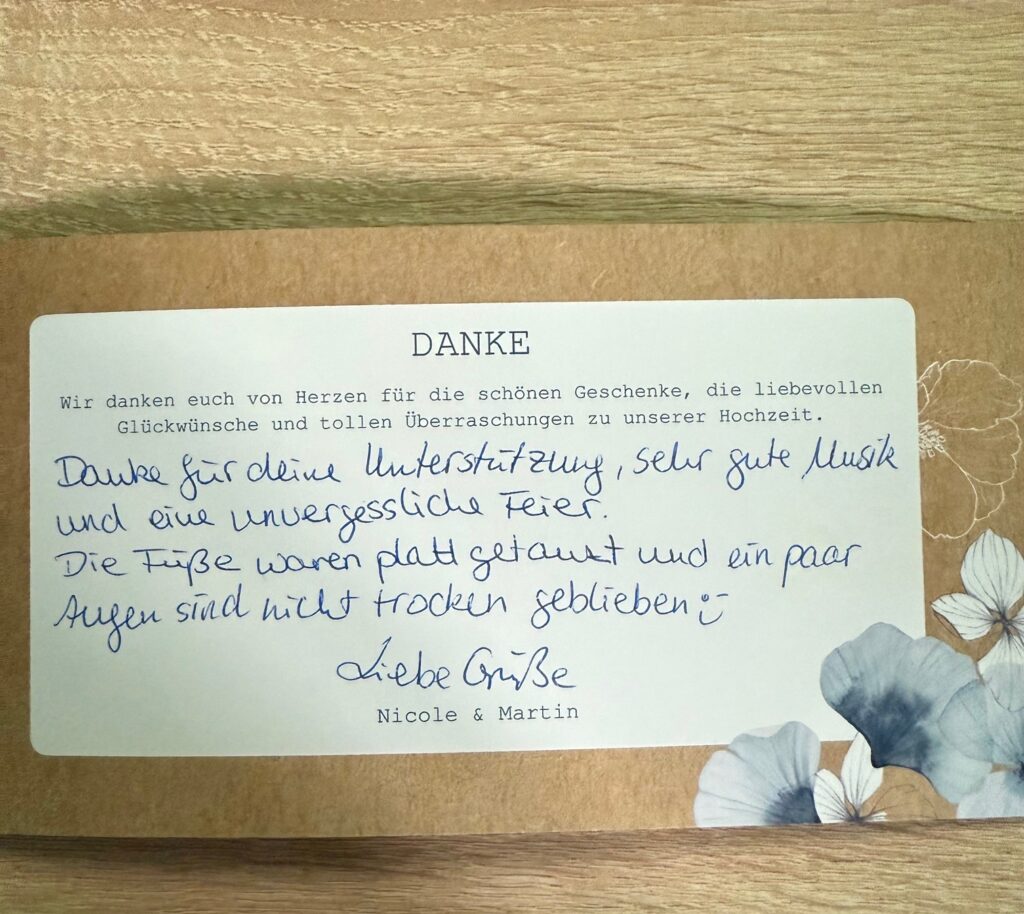 DANKE
Wir danken euch von Herzen für die schönen Geschenke, die liebevollen
Glückwünsche und tollen Überraschungen zu unserer Hochzeit.
Danke für deine Unterstützung, sehr gute Musik
und eine unvergessliche Feier.
Die Füße waren platt getanzt und ein paar
Augen sind nicht trocken geblieben :-)
Liebe Grüße
Nicole & Martin